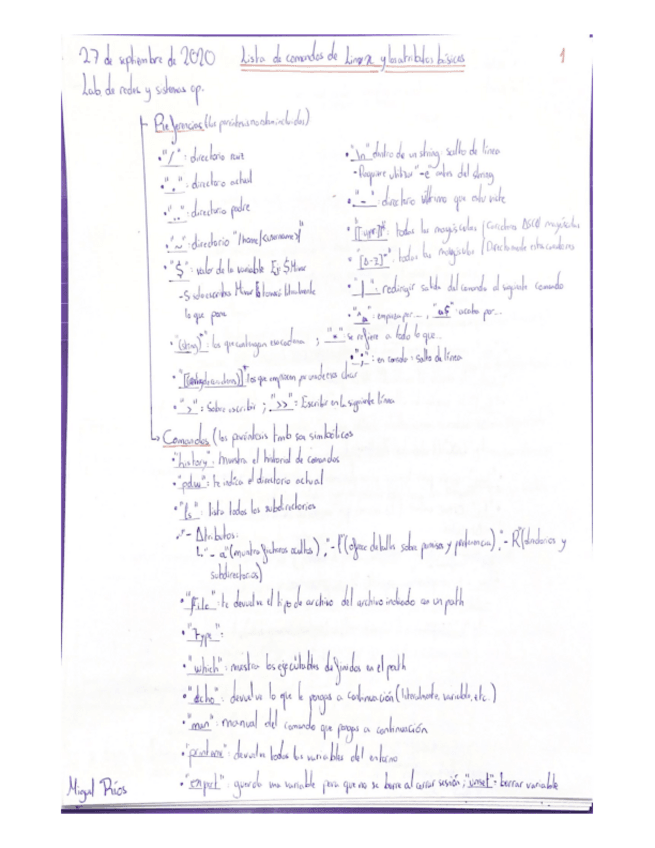 27 de septiembre de 2020 Lista de comandos de Linux y los atributos básicos 1
Lab. de redes y sistemas op.
Preferencias (los paréntesis no están incluidos)
• "/" : directorio raíz
• "." : directorio actual
• ".." : directorio padre
• "~" : directorio "/home/<username>/"
• "$" : valor de la variable Ej $Mivar
- Si sólo escribes Mivar literalmente
lo que pone
• "\n" dentro de un string: salto de línea
- Requiere utilizar "-e" antes del string
• "-" : directorio último que estuviste
• todas las mayúsculas
• todas las mayúsculas
• "|" : redirigir salida del comando al siguiente comando
• empieza por... , acaba por...
• "(string)*" los que contengan esa cadena ; "*" : se refiere a todo lo que...
• ";" : en comando : salto de línea
• los que empiecen por uno de esos char
• ">" : Sobre escribir ; ">>" : Escribir en la siguiente línea
Comandos (los paréntesis tmb son simbólicos
• "history" : muestra el historial de comandos
• "pdw" : te indica el directorio actual
• "ls" : lista todos los subdirectorios
- Atributos:
"-a" (muestra ficheros ocultos) , "-l" (ofrece detalles sobre permisos y ) , "-R" (directorios y
subdirectorios)
• "file" : te devuelve el tipo de archivo del archivo indicado en un path
• "type" :
• "which" : muestra los ejecutables definidos en el path
• "echo" : devuelve lo que le pongas a continuación (literalmente, variable, etc.)
• "man" : manual del comando que pongas a continuación
• "printenv" : devuelve todas las variables del entorno
• "export" : guarda una variable para que no se borre al cerrar sesión ; "unset" : borrar variable
Miguel Ríos